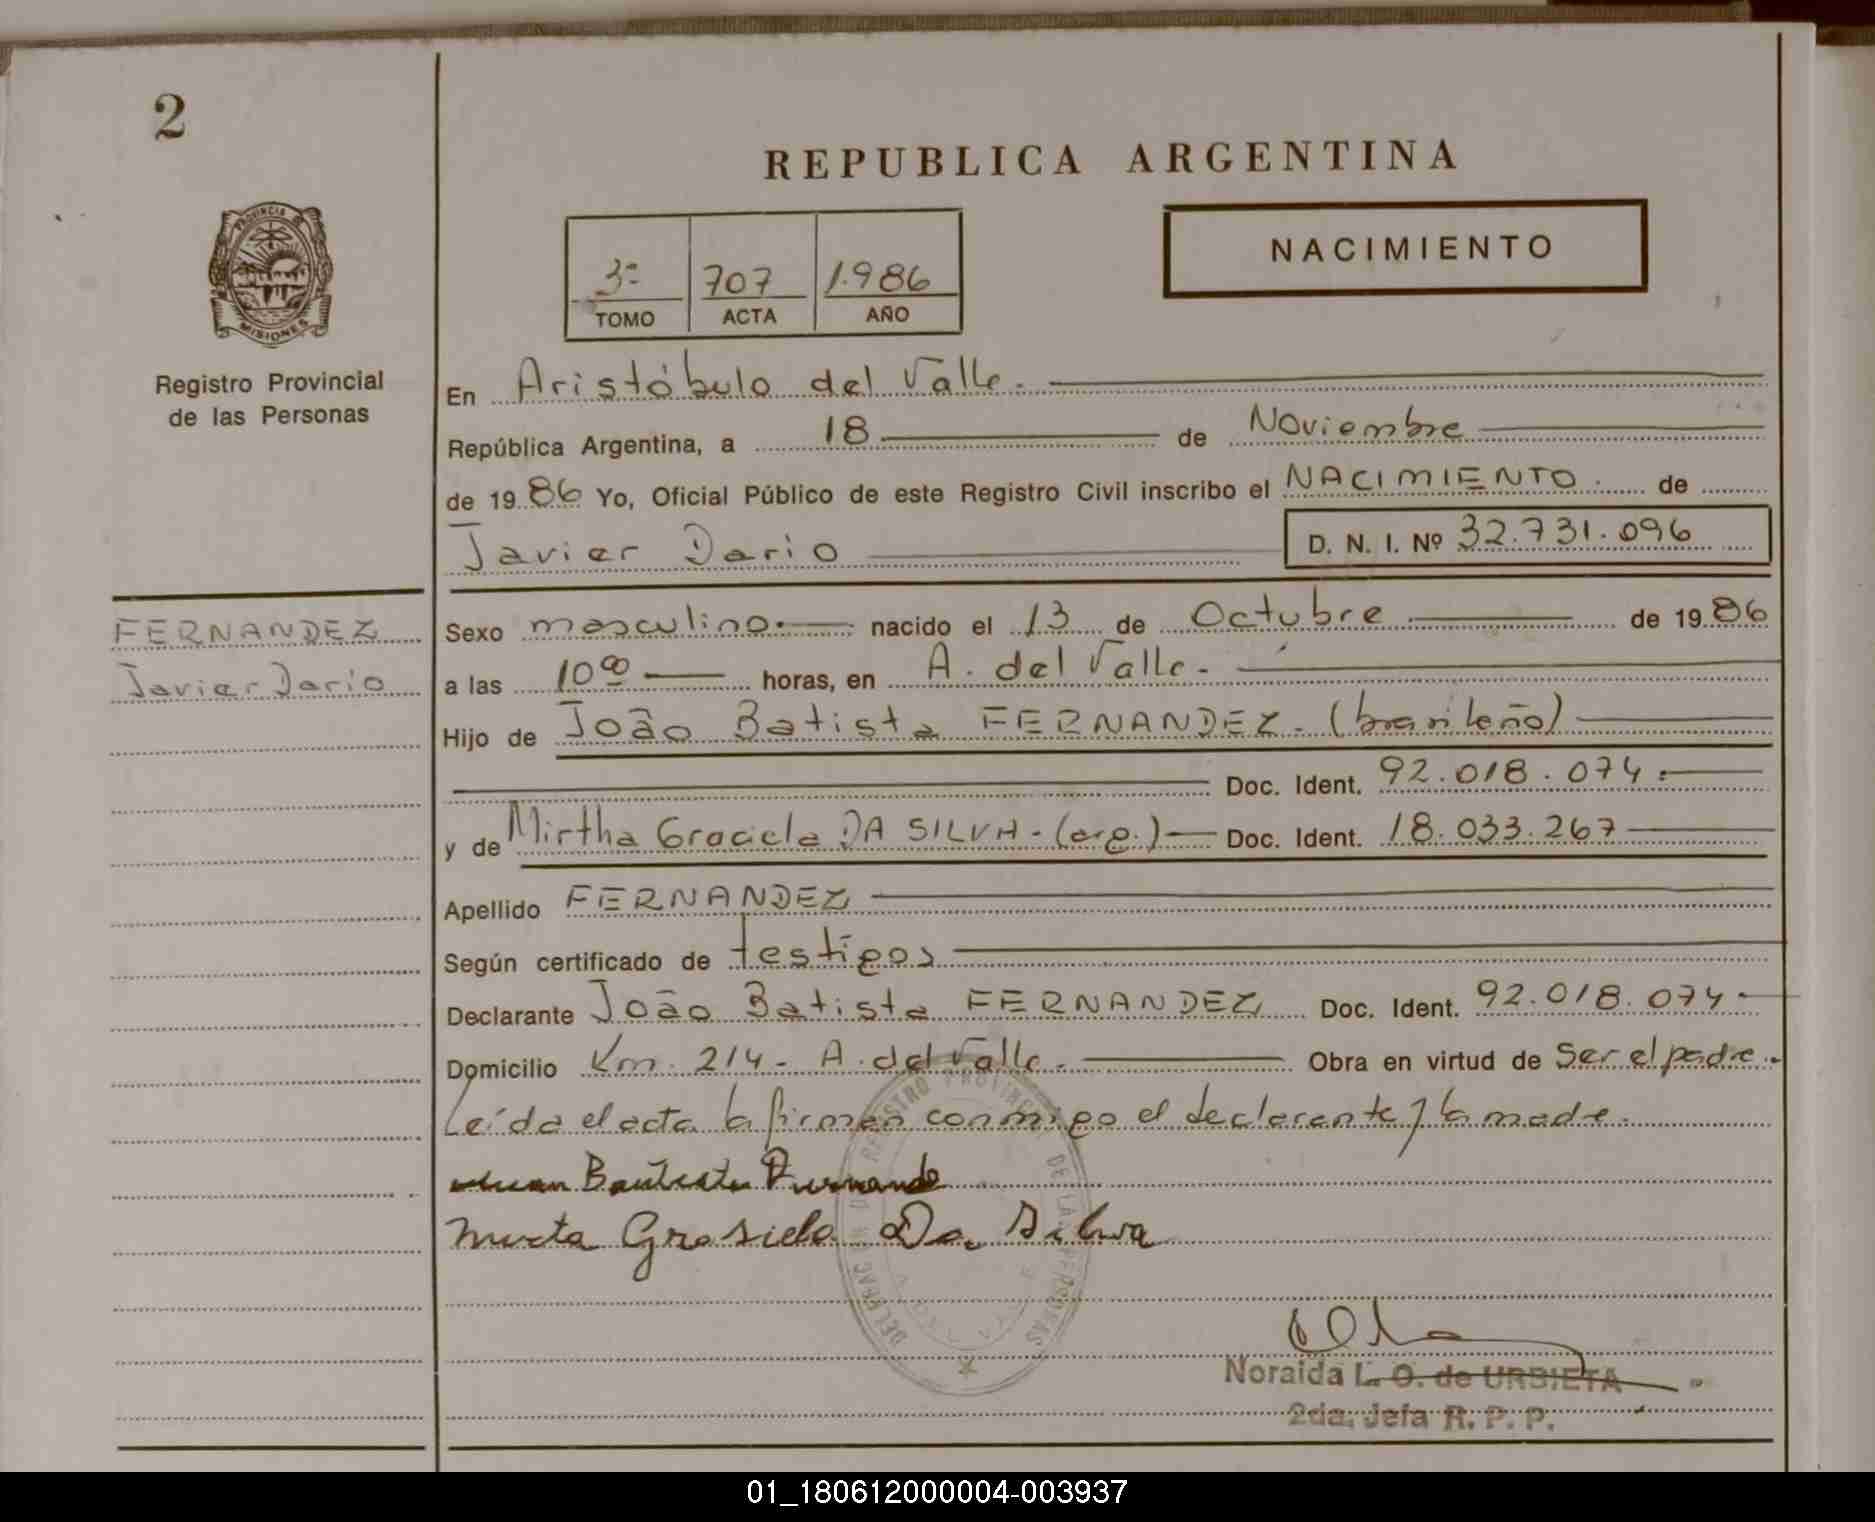 2
REPUBLICA ARGENTINA
PROVINCIA DE
MISIONES
Registro Provincial
de las Personas
3º 707 1.986
TOMO ACTA AÑO
NACIMIENTO
En Aristóbulo del Valle.
República Argentina, a 18 de Noviembre
de 1986 Yo, Oficial Público de este Registro Civil inscribo el NACIMIENTO. de
Javier Dario D. N. I. Nº 32.731.096
FERNANDEZ
Javier Dario
Sexo masculino. nacido el 13 de Octubre de 1986
a las 10 00 horas, en A. del Valle.
Hijo de João Batista FERNANDEZ. (brasileño)
Doc. Ident. 92.018.074.
y de Mirtha Graciela DA SILVA - (arg.) Doc. Ident. 18.033.267
Apellido FERNANDEZ
Según certificado de testigos
Declarante João Batista FERNANDEZ Doc. Ident. 92.018.074.
Domicilio Km. 214 - A. del Valle. Obra en virtud de ser el padre.
Leída el acta la firman conmigo el declarante y la madre.
Juan Bautista
Mirta Grasiela Da Silva
DELEGACION DEL REGISTRO PROVINCIAL DE LAS PERSONAS
Noraida L. O. de URBIETA
2da. Jefa R. P. P.
01_180612000004-003937